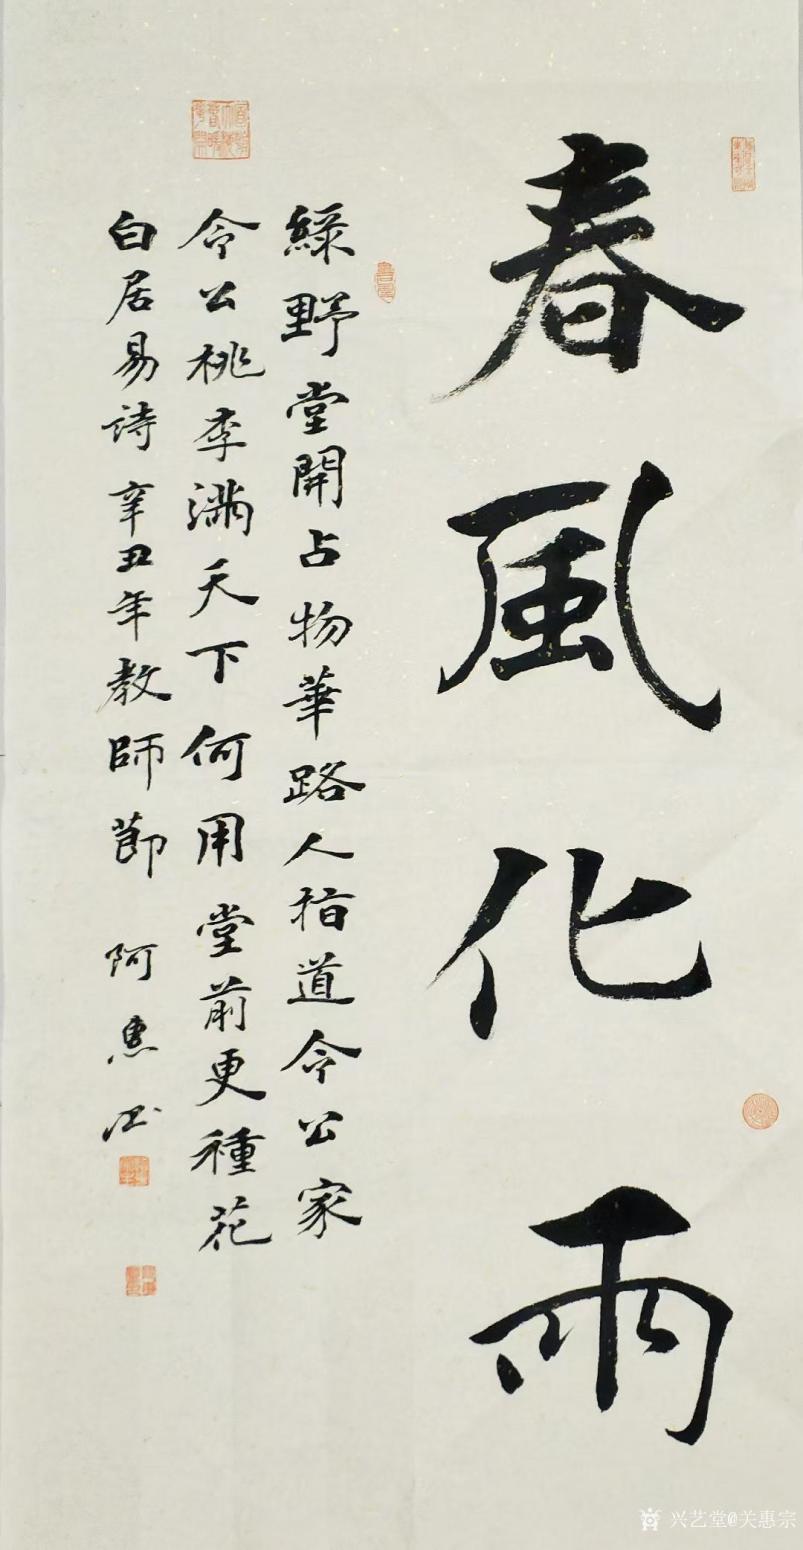 春風化雨
綠野堂開占物華路人指道令公家
令公桃李滿天下何用堂前更種花
白居易詩辛丑年教師節 阿惠
兴艺堂@关惠宗